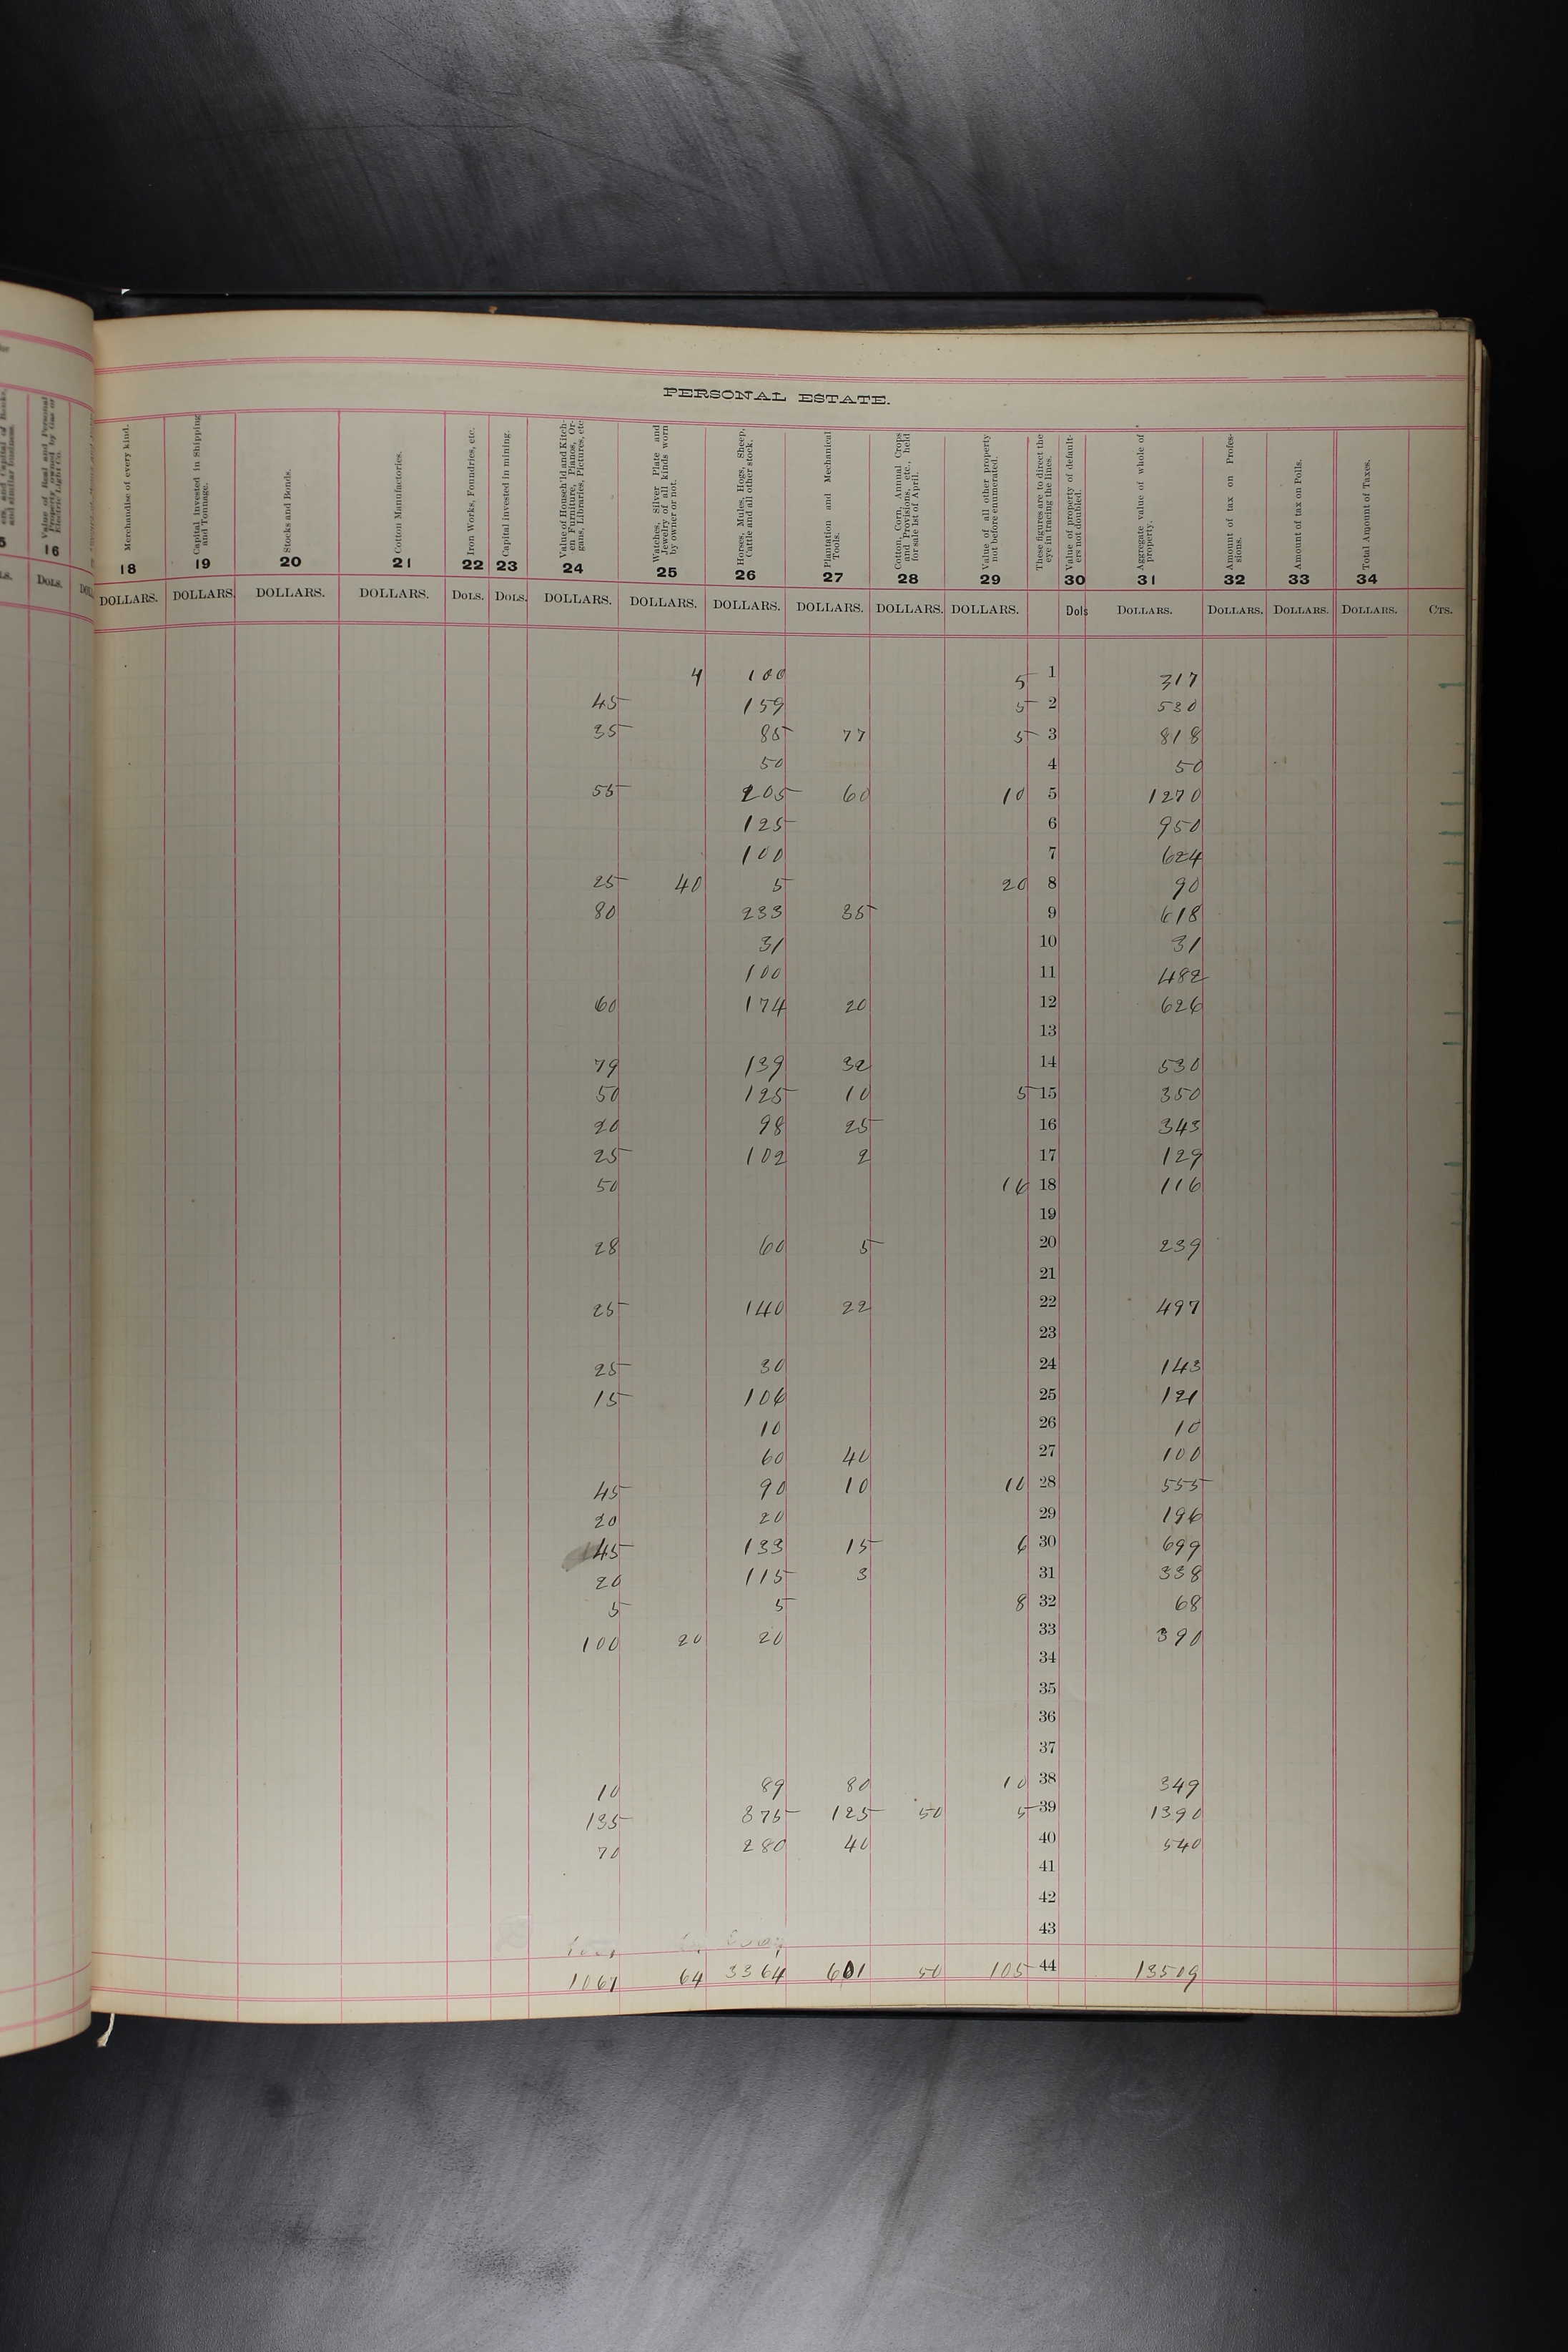 PERSONAL ESTATE.
Value of Real and Personal Property owned by Gas or Electric Light Co.
16
Merchandise of every kind.
18
Capital Invested in Shipping and Tonnage.
19
Stocks and Bonds.
20
Cotton Manufactories.
21
Iron Works, Foundries, etc.
22
Capital invested in mining.
23
Value of Househ'ld and Kitch-en Furniture, Pianos, Or-gans, Libraries, Pictures, etc
24
Watches, Silver Plate and Jewelry of all kinds worn by owner or not.
25
Horses, Mules, Hogs, Sheep, Cattle and all other stock.
26
Plantation and Mechanical Tools.
27
Cotton, Corn, Annual Crops and Provisions, etc., held for sale 1st of April.
28
Value of all other property not before enumerated.
29
These figures are to direct the eye in tracing the lines.
Value of property of default-ers not doubled.
30
Aggregate value of whole of property.
31
Amount of tax on Profes-sions.
32
Amount of tax on Polls.
33
Total Amount of Taxes.
34
DOLS. DOLLARS. DOLLARS. DOLLARS. DOLLARS. DOLS. DOLS. DOLLARS. DOLLARS. DOLLARS. DOLLARS. DOLLARS. DOLLARS. Dols DOLLARS. DOLLARS. DOLLARS. DOLLARS. CTS.
4 100 5 1 317
45 159 5 2 530
35 85 77 5 3 818
50 4 50
55 205 60 10 5 1270
125 6 950
100 7 624
25 40 5 20 8 90
80 233 35 9 618
31 10 31
100 11 482
60 174 20 12 626
13
79 139 32 14 530
50 125 10 5 15 350
20 98 25 16 343
25 102 2 17 129
50 16 18 116
19
28 60 5 20 239
21
25 140 22 22 497
23
25 30 24 143
15 106 25 121
10 26 10
60 40 27 100
45 90 10 10 28 555
20 20 29 196
45 133 15 6 30 699
20 115 3 31 338
5 5 8 32 68
100 20 20 33 390
34
35
36
37
10 89 80 10 38 349
135 375 125 50 5 39 1390
70 280 40 40 540
41
42
43
1067 64 3364 601 50 105 44 13509